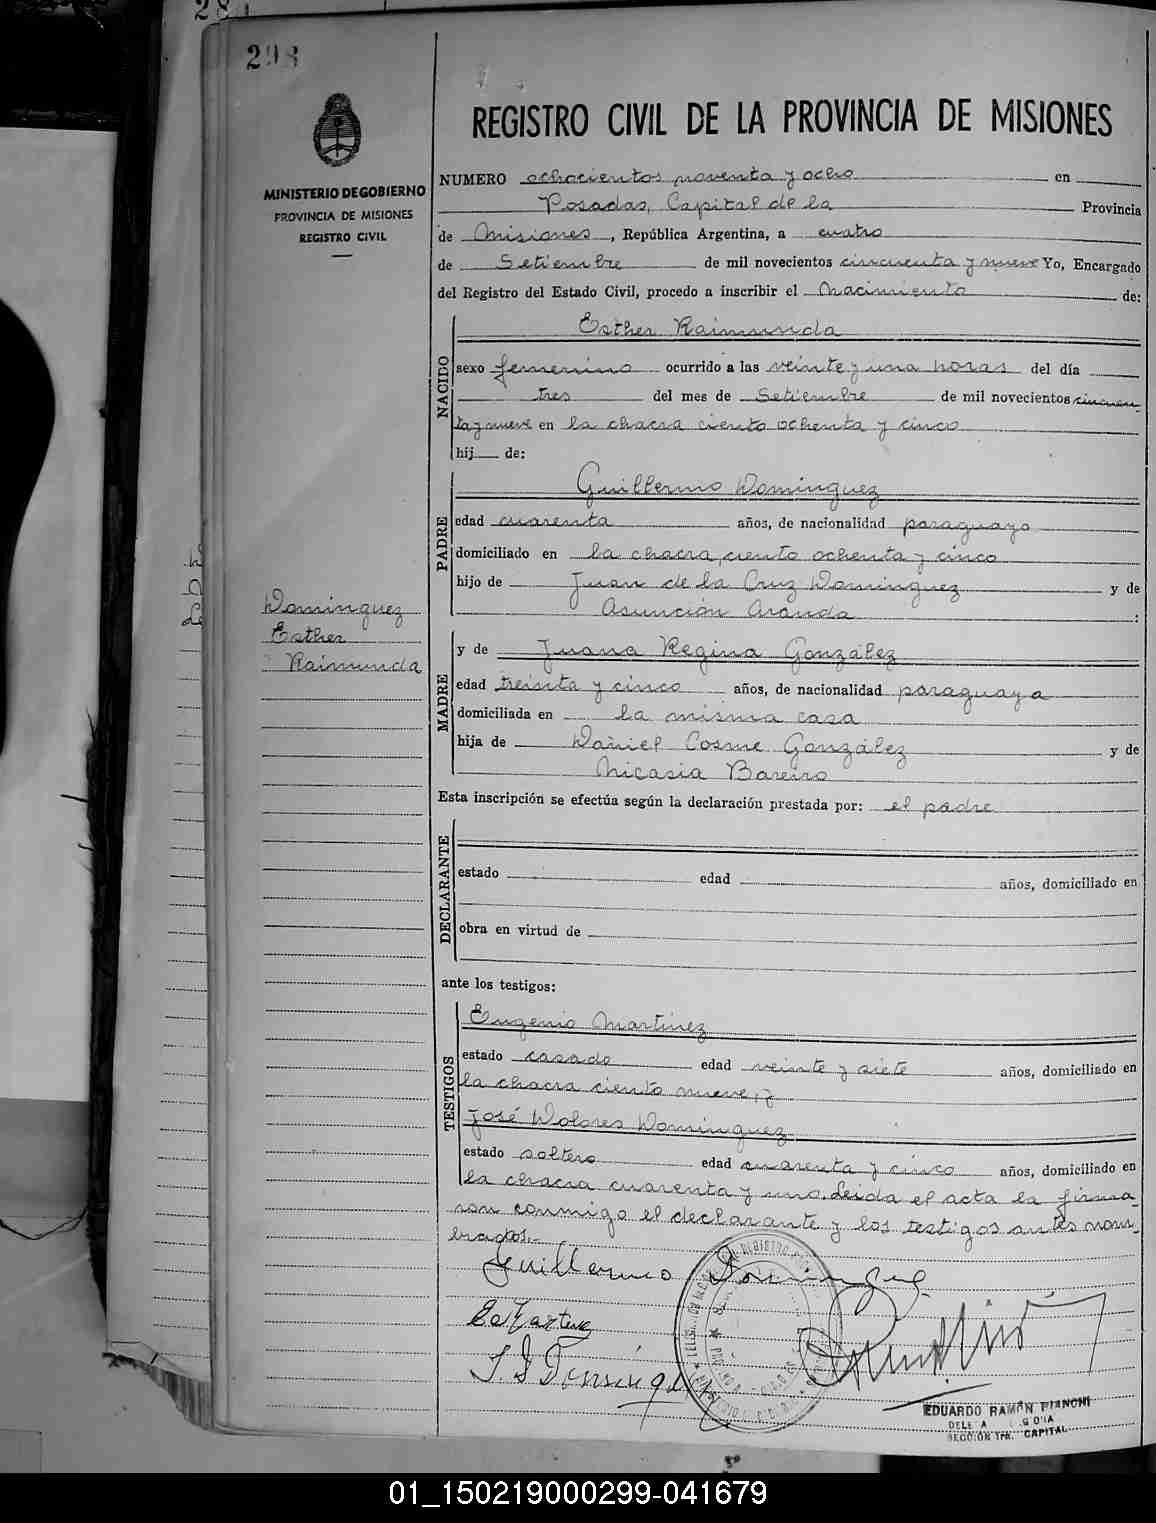 298
REGISTRO CIVIL DE LA PROVINCIA DE MISIONES
MINISTERIO DE GOBIERNO
PROVINCIA DE MISIONES
REGISTRO CIVIL
NUMERO ochocientos noventa y ocho en
Posadas, Capital de la Provincia
de Misiones, República Argentina, a cuatro
de Setiembre de mil novecientos cincuenta y nueve Yo, Encargado
del Registro del Estado Civil, procedo a inscribir el Nacimiento de:
NACIDO
Esther Raimunda
sexo femenino ocurrido a las veinte y una horas del día
tres del mes de Setiembre de mil novecientos cincuen
ta y nueve en la chacra ciento ochenta y cinco
hij de:
PADRE
Guillermo Dominguez
edad cuarenta años, de nacionalidad paraguayo
domiciliado en la chacra, ciento ochenta y cinco
hijo de Juan de la Cruz Dominguez y de
Asunción Aranda :
Dominguez
Esther
Raimunda
MADRE
y de Juana Regina González
edad treinta y cinco años, de nacionalidad paraguaya
domiciliada en la misma casa
hija de Daniel Cosme González y de
Nicasia Bareiro
Esta inscripción se efectúa según la declaración prestada por: el padre
DECLARANTE
estado edad años, domiciliado en
obra en virtud de
ante los testigos:
TESTIGOS
Eugenio Martinez
estado casado edad veinte y siete años, domiciliado en
la chacra ciento nueve, y
José Dolores Dominguez
estado soltero edad cuarenta y cinco años, domiciliado en
la chacra cuarenta y uno. Leida el acta la firma
ron conmigo el declarante y los testigos antes nom
brados.-
Guillermo Dominguez
E. Martinez
J. D. Dominguez
EDUARDO RAMÓN BIANCHI
SECCIÓN 1ra. CAPITAL
01_150219000299-041679